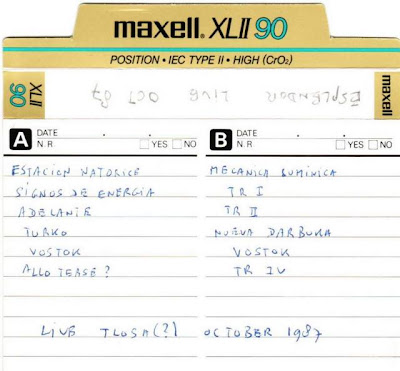 maxell. XLII 90
POSITION • IEC TYPE II • HIGH (CrO₂)
XLII 90
ESPLENDOR LIVE OCT 87
maxell
A DATE . .
N.R YES NO
ESTACION NATORICE
SIGNOS DE ENERGIA
ADELANTE
TURKO
VOSTOK
ALLO TEASE?
B DATE . .
N.R YES NO
MECANICA LUMINICA
TR I
TR II
NUEVA DARBUKA
VOSTOK
TR IV
LIVE TLOSA(?) OCTOBER 1987